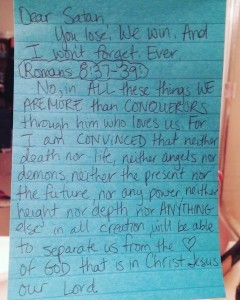 Dear Satan,
You lose. We win. And
I won't forget. Ever
Romans 8:37-39
No, in ALL these things WE
ARE MORE than CONQUERORS
through him who loves us. For
I am CONVINCED that neither
death nor life, neither angels nor
demons, neither the present nor
the future, nor any power, neither
height nor depth, nor ANYTHING
else in all creation, will be able
to separate us from the ♡
of GOD that is in Christ Jesus
our Lord.